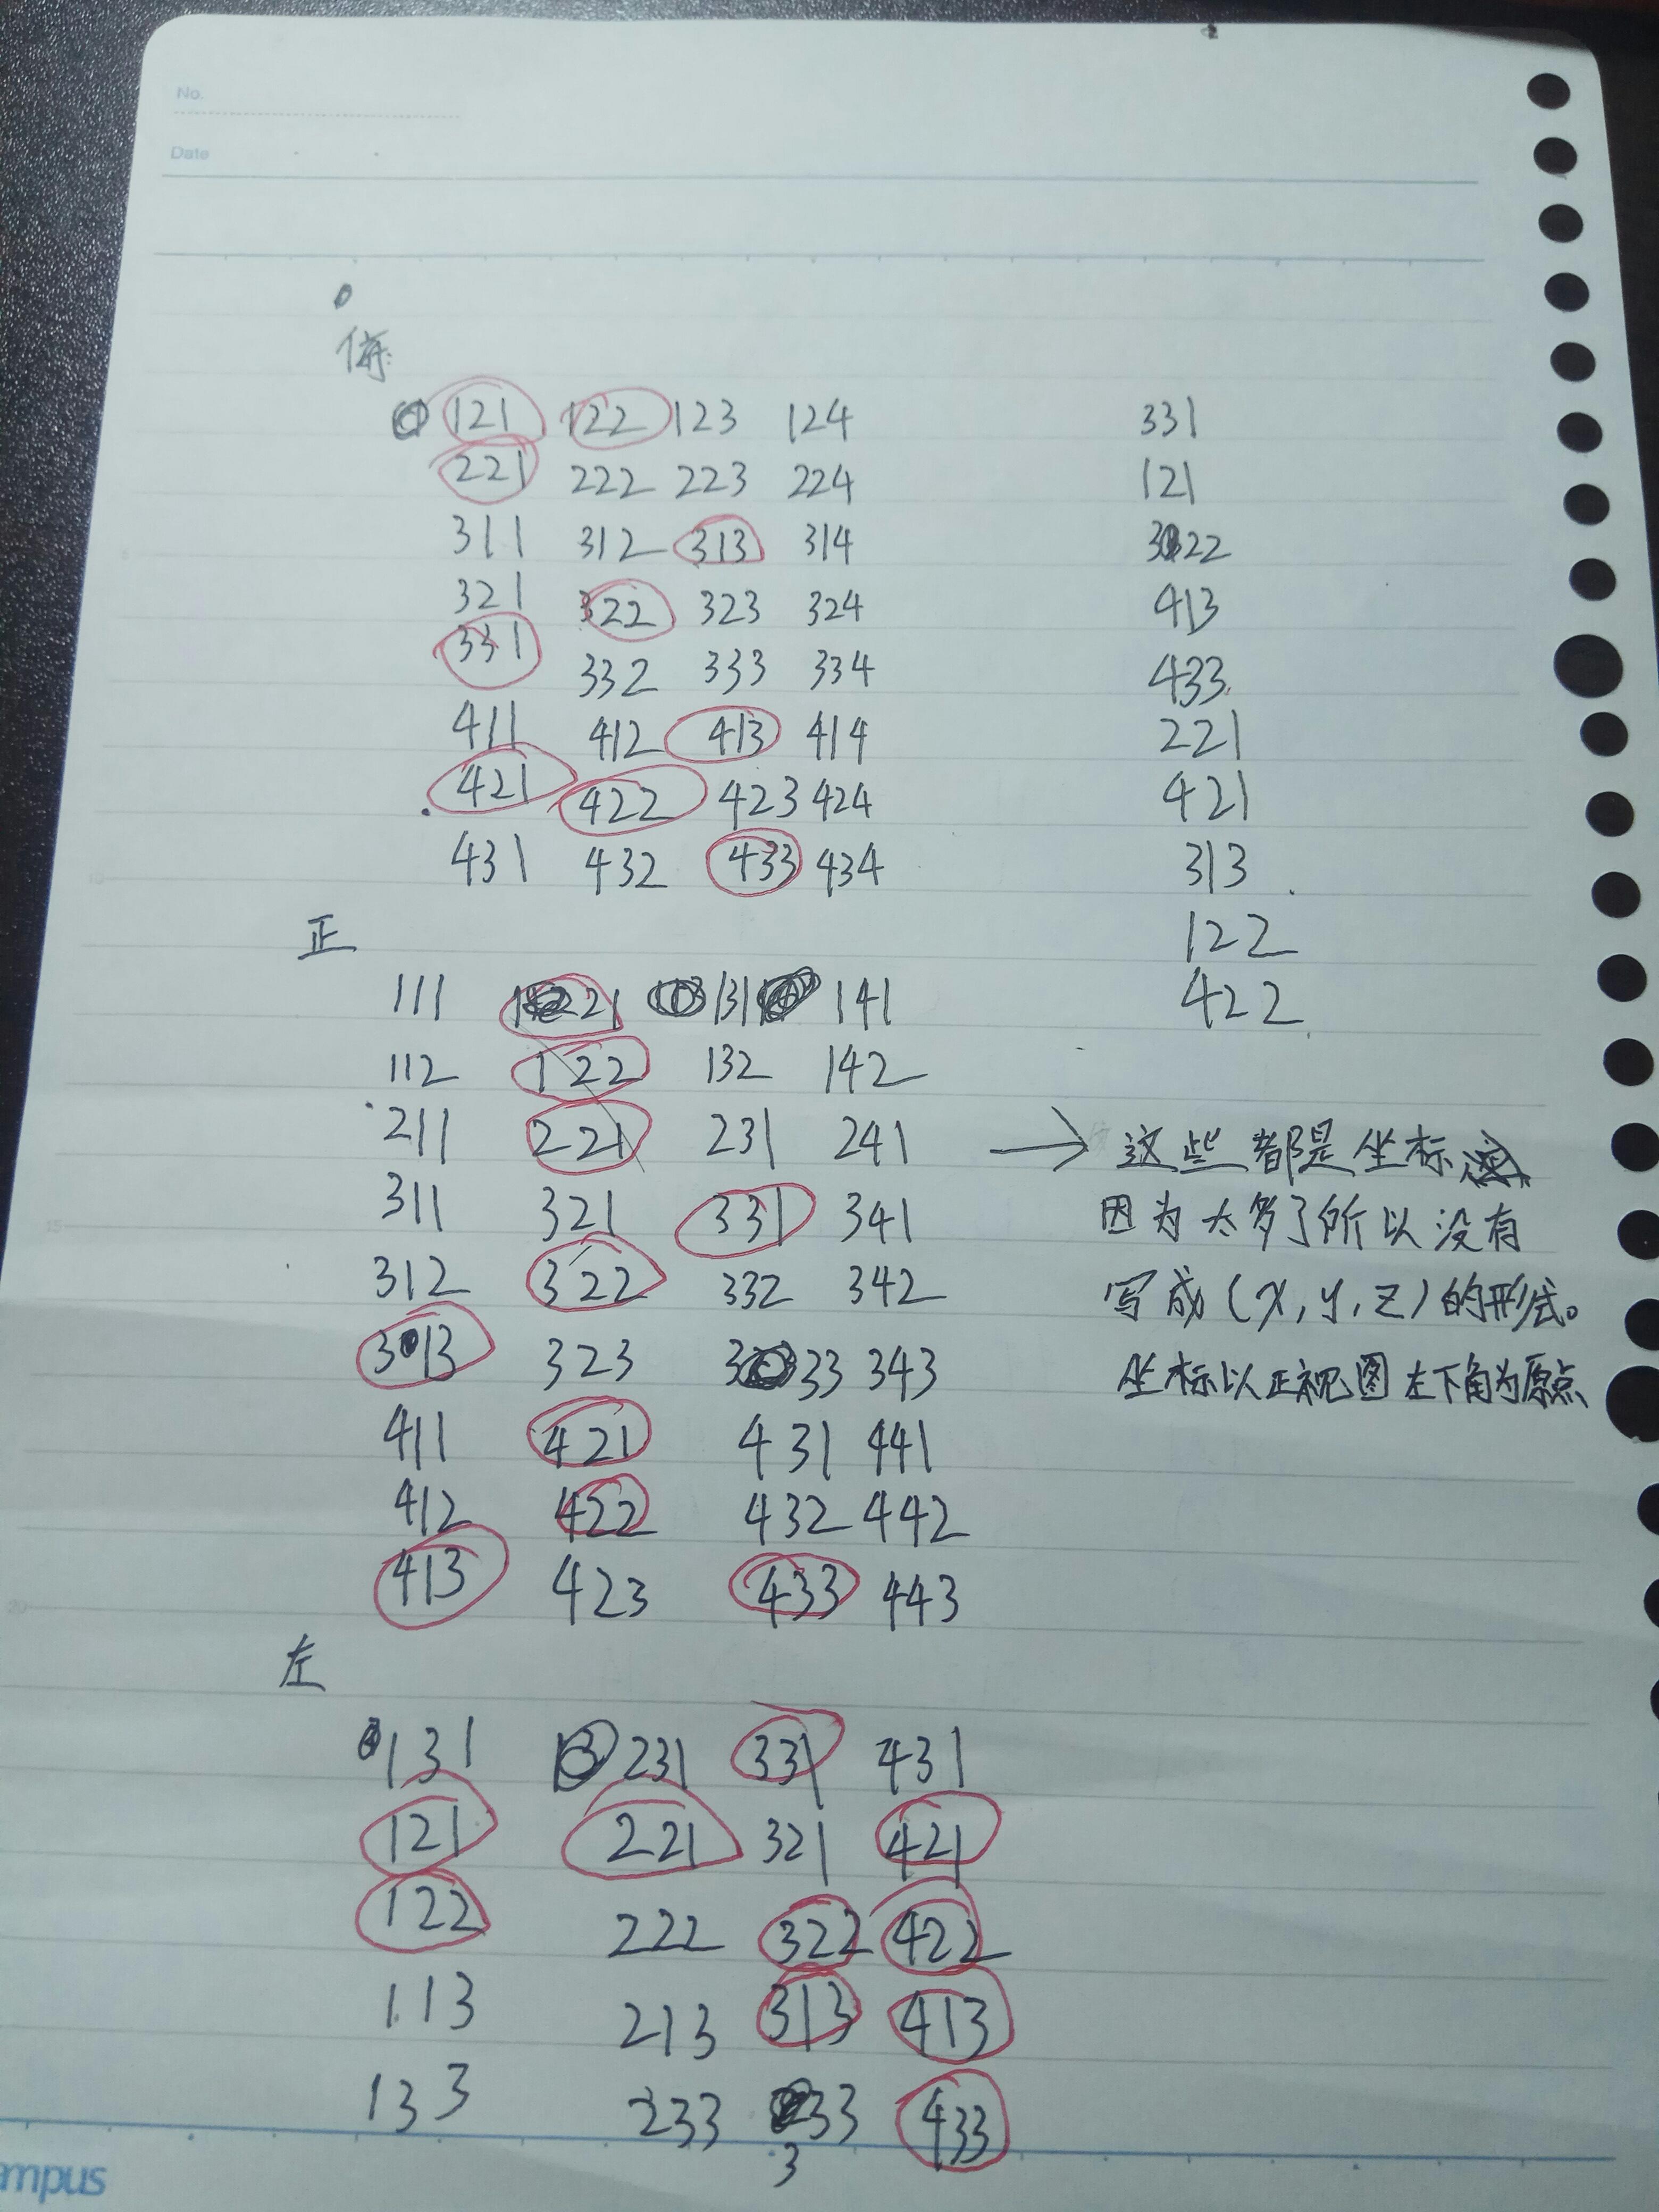 No.
Date
俯:
121 122 123 124 331
221 222 223 224 121
311 312 313 314 322
321 322 323 324 413
331 332 333 334 433
411 412 413 414 221
421 422 423 424 421
431 432 433 434 313
正 122
111 121 131 141 422
112 122 132 142
211 221 231 241
311 321 331 341
312 322 332 342
313 323 333 343
411 421 431 441
412 422 432 442
413 423 433 443
→ 这些都是坐标
因为太多了所以没有
写成(x,y,z)的形式。
坐标以正视图左下角为原点
左
131 231 331 431
121 221 321 421
122 222 322 422
113 213 313 413
133 233 333 433
mpus